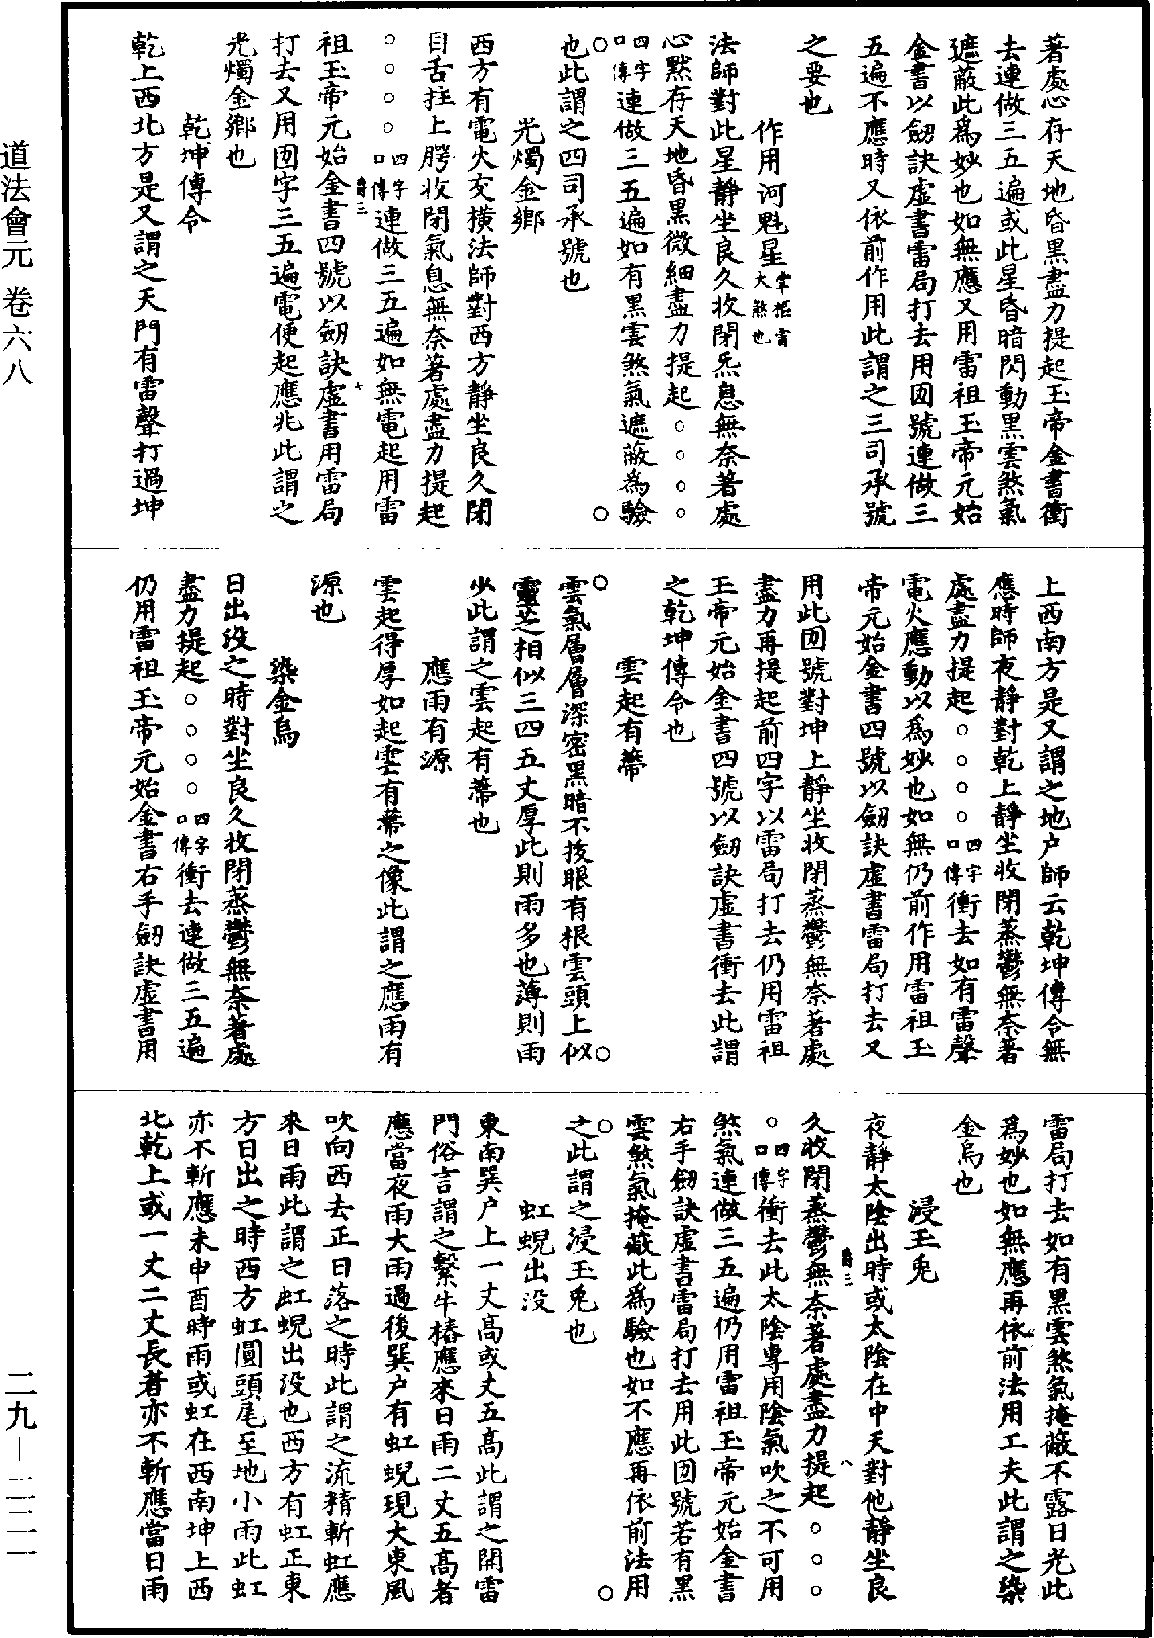 道法會元 卷六八
二九—二二一
著處心存天地昏黑盡力提起玉帝金書衝
去連做三五遍或此星昏暗閃動黑雲煞氣
遮蔽此爲妙也如無應又用雷祖玉帝元始
金書以劒訣虛書雷局打去用囡號連做三
五遍不應時又依前作用此謂之三司承號
之要也
作用河魁星掌握雷大煞也
法師對此星靜坐良久收閉炁息無奈著處
心默存天地昏黑微細盡力提起○○○○
四字口傳連做三五遍如有黑雲煞氣遮蔽爲驗
也此謂之四司承號也
光燭金鄉
西方有電火交橫法師對西方靜坐良久閉
目舌拄上腭收閉氣息無奈著處盡力提起
○○○○四字口傳連做三五遍如無電起用雷
祖玉帝元始金書四號以劒訣虛書用雷局
打去又用囡字三五遍電便起應兆此謂之
光燭金鄉也
乾坤傳令
乾上西北方是又謂之天門有雷聲打過坤
上西南方是又謂之地户師云乾坤傳令無
應時師夜靜對乾上靜坐收閉蒸鬱無奈著
處盡力提起○○○○四字口傳衝去如有雷聲
電火應動以爲妙也如無仍前作用雷祖玉
帝元始金書四號以劒訣虛書雷局打去又
用此囡號對坤上靜坐收閉蒸鬱無奈著處
盡力再提起前四字以雷局打去仍用雷祖
玉帝元始金書四號以劒訣虛書衝去此謂
之乾坤傳令也
雲起有蔕
雲氣層層深密黑暗不拔眼有根雲頭上似
靈芝相似三四五丈厚此則雨多也薄則雨
少此謂之雲起有蔕也
應雨有源
雲起得厚如起雲有蔕之像此謂之應雨有
源也
染金烏
日出没之時對坐良久收閉蒸鬱無奈著處
盡力提起○○○○四字口傳衝去連做三五遍
仍用雷祖玉帝元始金書右手劒訣虛書用
雷局打去如有黑雲煞氣掩蔽不露日光此
爲妙也如無應再依前法用工夫此謂之染
金烏也
浸玉兎
夜靜太陰出時或太陰在中天對他靜坐良
久收閉蒸鬱無奈著處盡力提起○○○
○四字口傳衝去此太陰專用陰氣吹之不可用
煞氣連做三五遍仍用雷祖玉帝元始金書
右手劒訣虛書雷局打去用此囡號若有黑
雲煞氣掩蔽此爲驗也如不應再依前法用
之此謂之浸玉兎也
虹蜺出没
東南巽户上一丈高或丈五高此謂之開雷
門俗言謂之繫牛樁應來日雨二丈五高者
應當夜雨大雨過後巽户有虹蜺現大東風
吹向西去正日落之時此謂之流精斬虹應
來日雨此謂之虹蜺出没也西方有虹正東
方日出之時西方虹圓頭尾至地小雨此虹
亦不斬應未申酉時雨或虹在西南坤上西
北乾上或一丈二丈長者亦不斬應當日雨